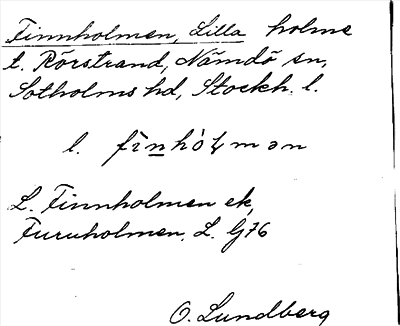 Finnholmen, Lilla holme
t. Rörstrand, Nämdö sn,
Sotholms hd, Stockh. l.
l. fìnhòɭmən
L. Finnholmen ek,
Furuholmen, L. G76
O. Lundberg